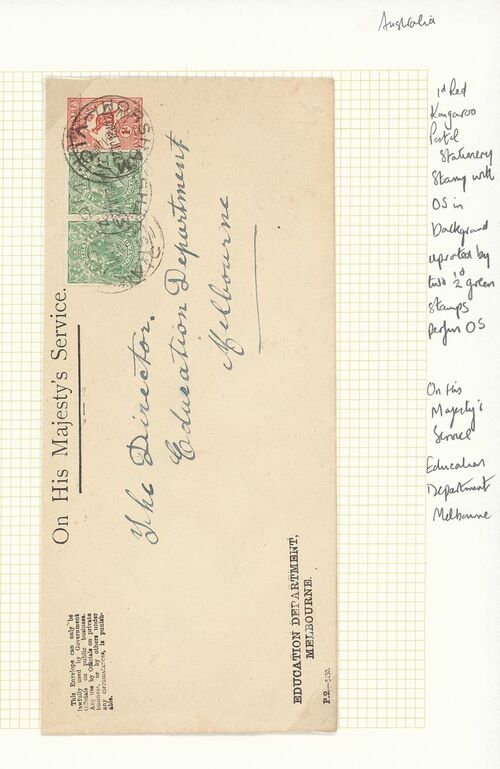 Australia
1d Red
Kangaroo
Postal
Stationery
Stamp with
OS in
background
uprated by
two ½d green
stamps
perfin OS
On His
Majesty's
Service
Education
Department
Melbourne
On His Majesty's Service.
The Director.
Education Department
Melbourne
This Envelope can only be
lawfully used by Government
Officials on public business.
Any use by Officials on private
business, or by others under
any circumstances, is punish-
able.
EDUCATION DEPARTMENT,
MELBOURNE.
HORSHAM